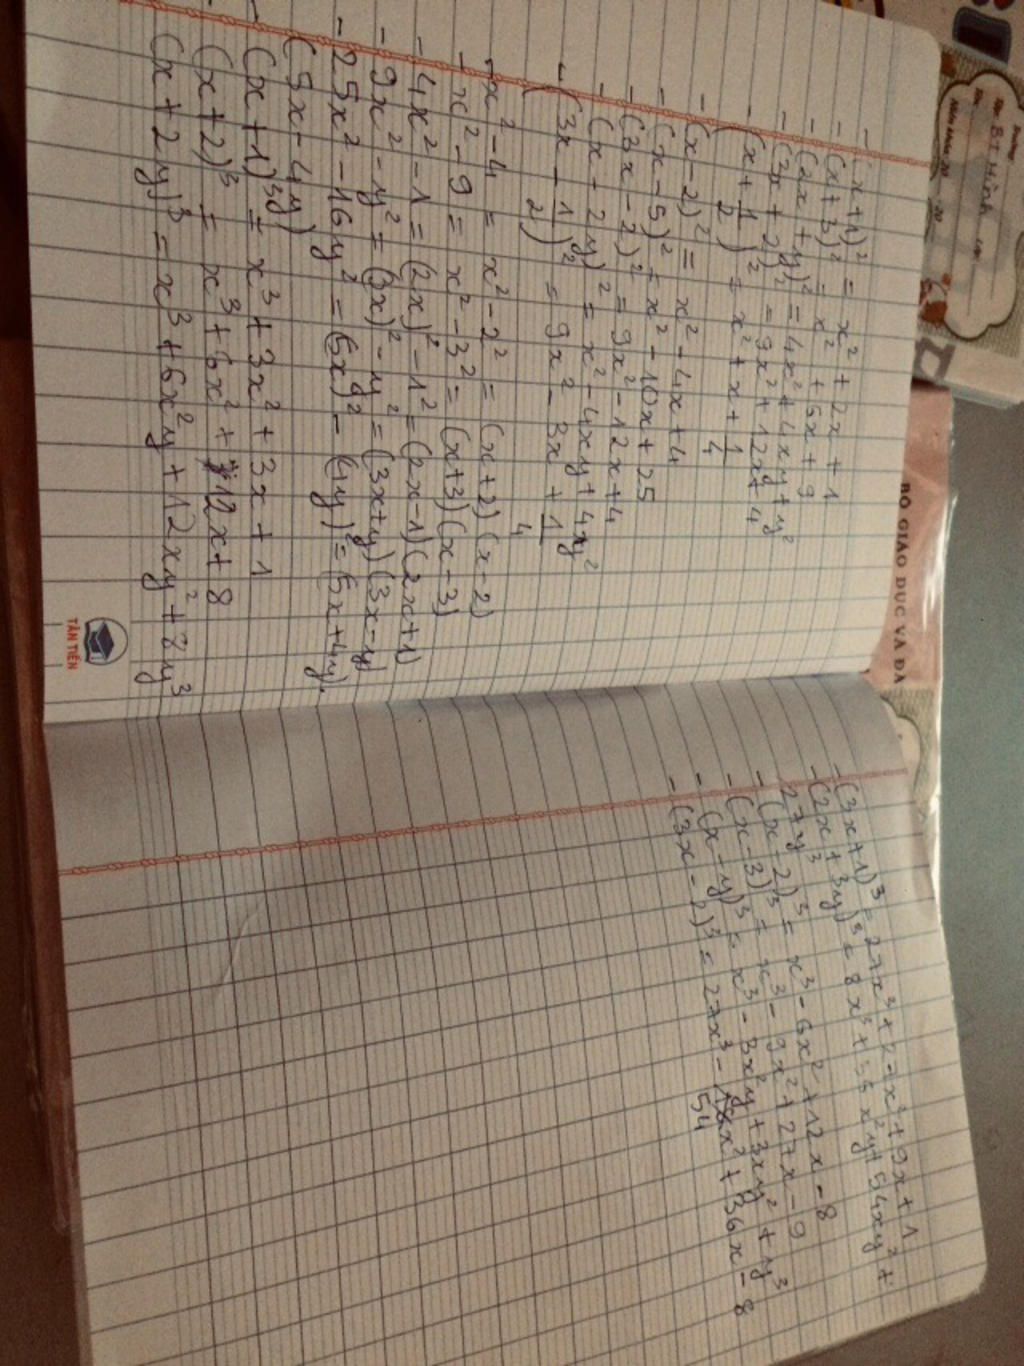 - (x+1)² = x² + 2x + 1
- (x+3)² = x² + 6x + 9
- (2x + y)² = 4x² + 4xy + y²
- (3x + 2)² = 9x² + 12x + 4
- (x + 1/2)² = x² + x + 1/4
- (x-2)² = x² - 4x + 4
- (x-5)² = x² - 10x + 25
- (3x-2)² = 9x² - 12x + 4
- (x - 2y)² = x² - 4xy + 4y²
- (3x - 1/2)² = 9x² - 3x + 1/4
- x² - 4 = x² - 2² = (x+2)(x-2)
- x² - 9 = x² - 3² = (x+3)(x-3)
- 4x² - 1 = (2x)² - 1² = (2x-1)(2x+1)
- 9x² - y² = (3x)² - y² = (3x+y)(3x-y)
- 25x² - 16y² = (5x)² - (4y)² = (5x+4y).
(5x-4y)
- (x+1)³ = x³ + 3x² + 3x + 1
- (x+2)³ = x³ + 6x² + 12x + 8
- (x+2y)³ = x³ + 6x²y + 12xy² + 8y³
TÂN TIẾN
- (3x+1)³ = 27x³ + 27x² + 9x + 1
- (2x + 3y)³ = 8x³ + 36x²y + 54xy² +
27y³
- (x-2)³ = x³ - 6x² + 12x - 8
- (x-3)³ = x³ - 9x² + 27x - 9
- (x-y)³ = x³ - 3x²y + 3xy² + y³
- (3x-2)³ = 27x³ - 54x² + 36x - 8
BỘ GIÁO DỤC VÀ ĐÀ